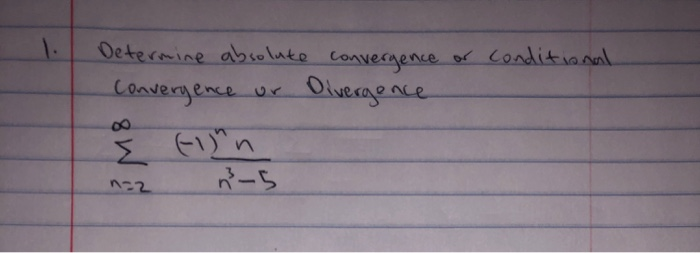 1. Determine absolute convergence or conditional
Convergence or Divergence
∞
Σ (-1)^n n
n=2 n^3-5